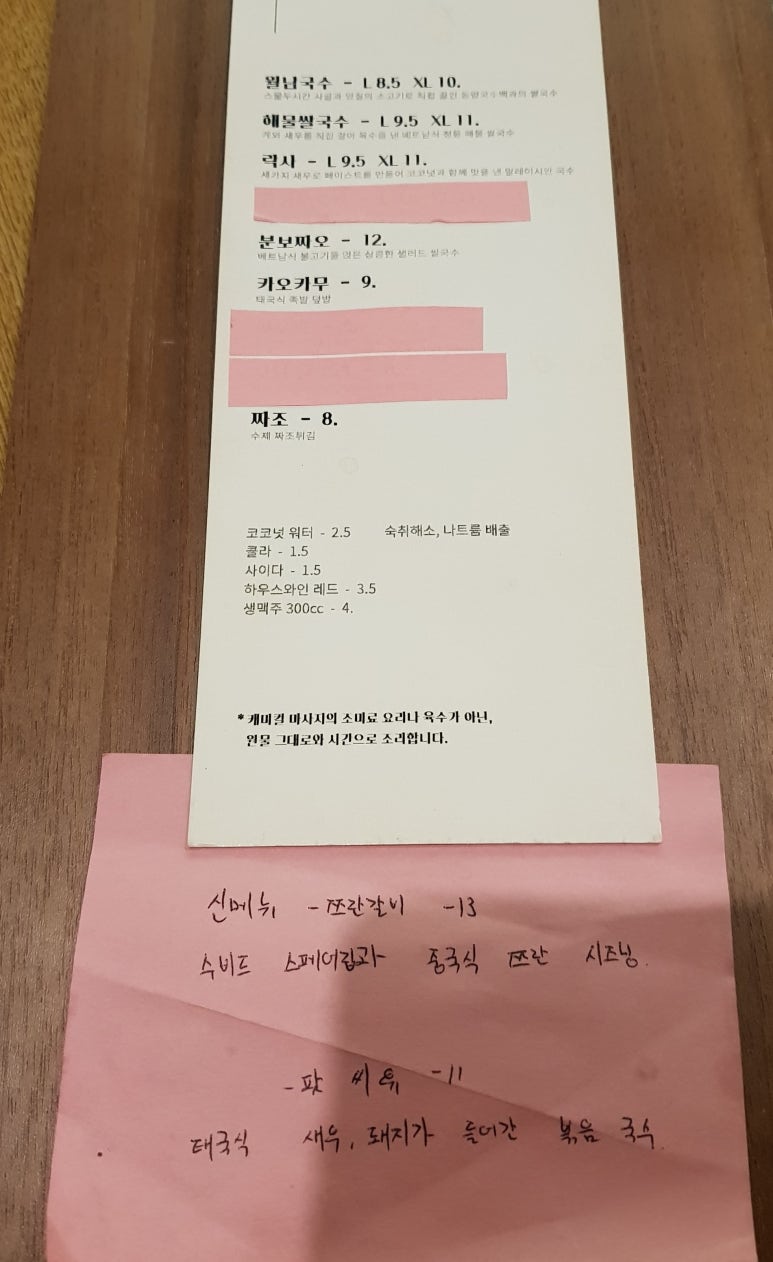 월남국수 - L 8.5 XL 10.
스물두시간 사골과 양질의 소고기로 직접 끓인 동량국수백과의 쌀국수
해물쌀국수 - L 9.5 XL 11.
게와 새우를 직접 갈아 육수를 낸 베트남식 정통 해물 쌀국수
락사 - L 9.5 XL 11.
세가지 새우로 페이스트를 만들어 코코넛과 함께 맛을 낸 말레이시안 국수
분보짜오 - 12.
베트남식 불고기를 얹은 상큼한 샐러드 쌀국수
카오카무 - 9.
태국식 족발 덮밥
짜조 - 8.
수제 짜조튀김
코코넛 워터 - 2.5 숙취해소, 나트륨 배출
콜라 - 1.5
사이다 - 1.5
하우스와인 레드 - 3.5
생맥주 300cc - 4.
* 캐미컬 마사지의 소미료 요리나 육수가 아닌,
원물 그대로와 시간으로 소리합니다.
신메뉴 - 쯔란갈비 -13
수비드 스페어립과 중국식 쯔란 시즈닝.
- 팟 씨유 -11
태국식 새우, 돼지가 들어간 볶음 국수